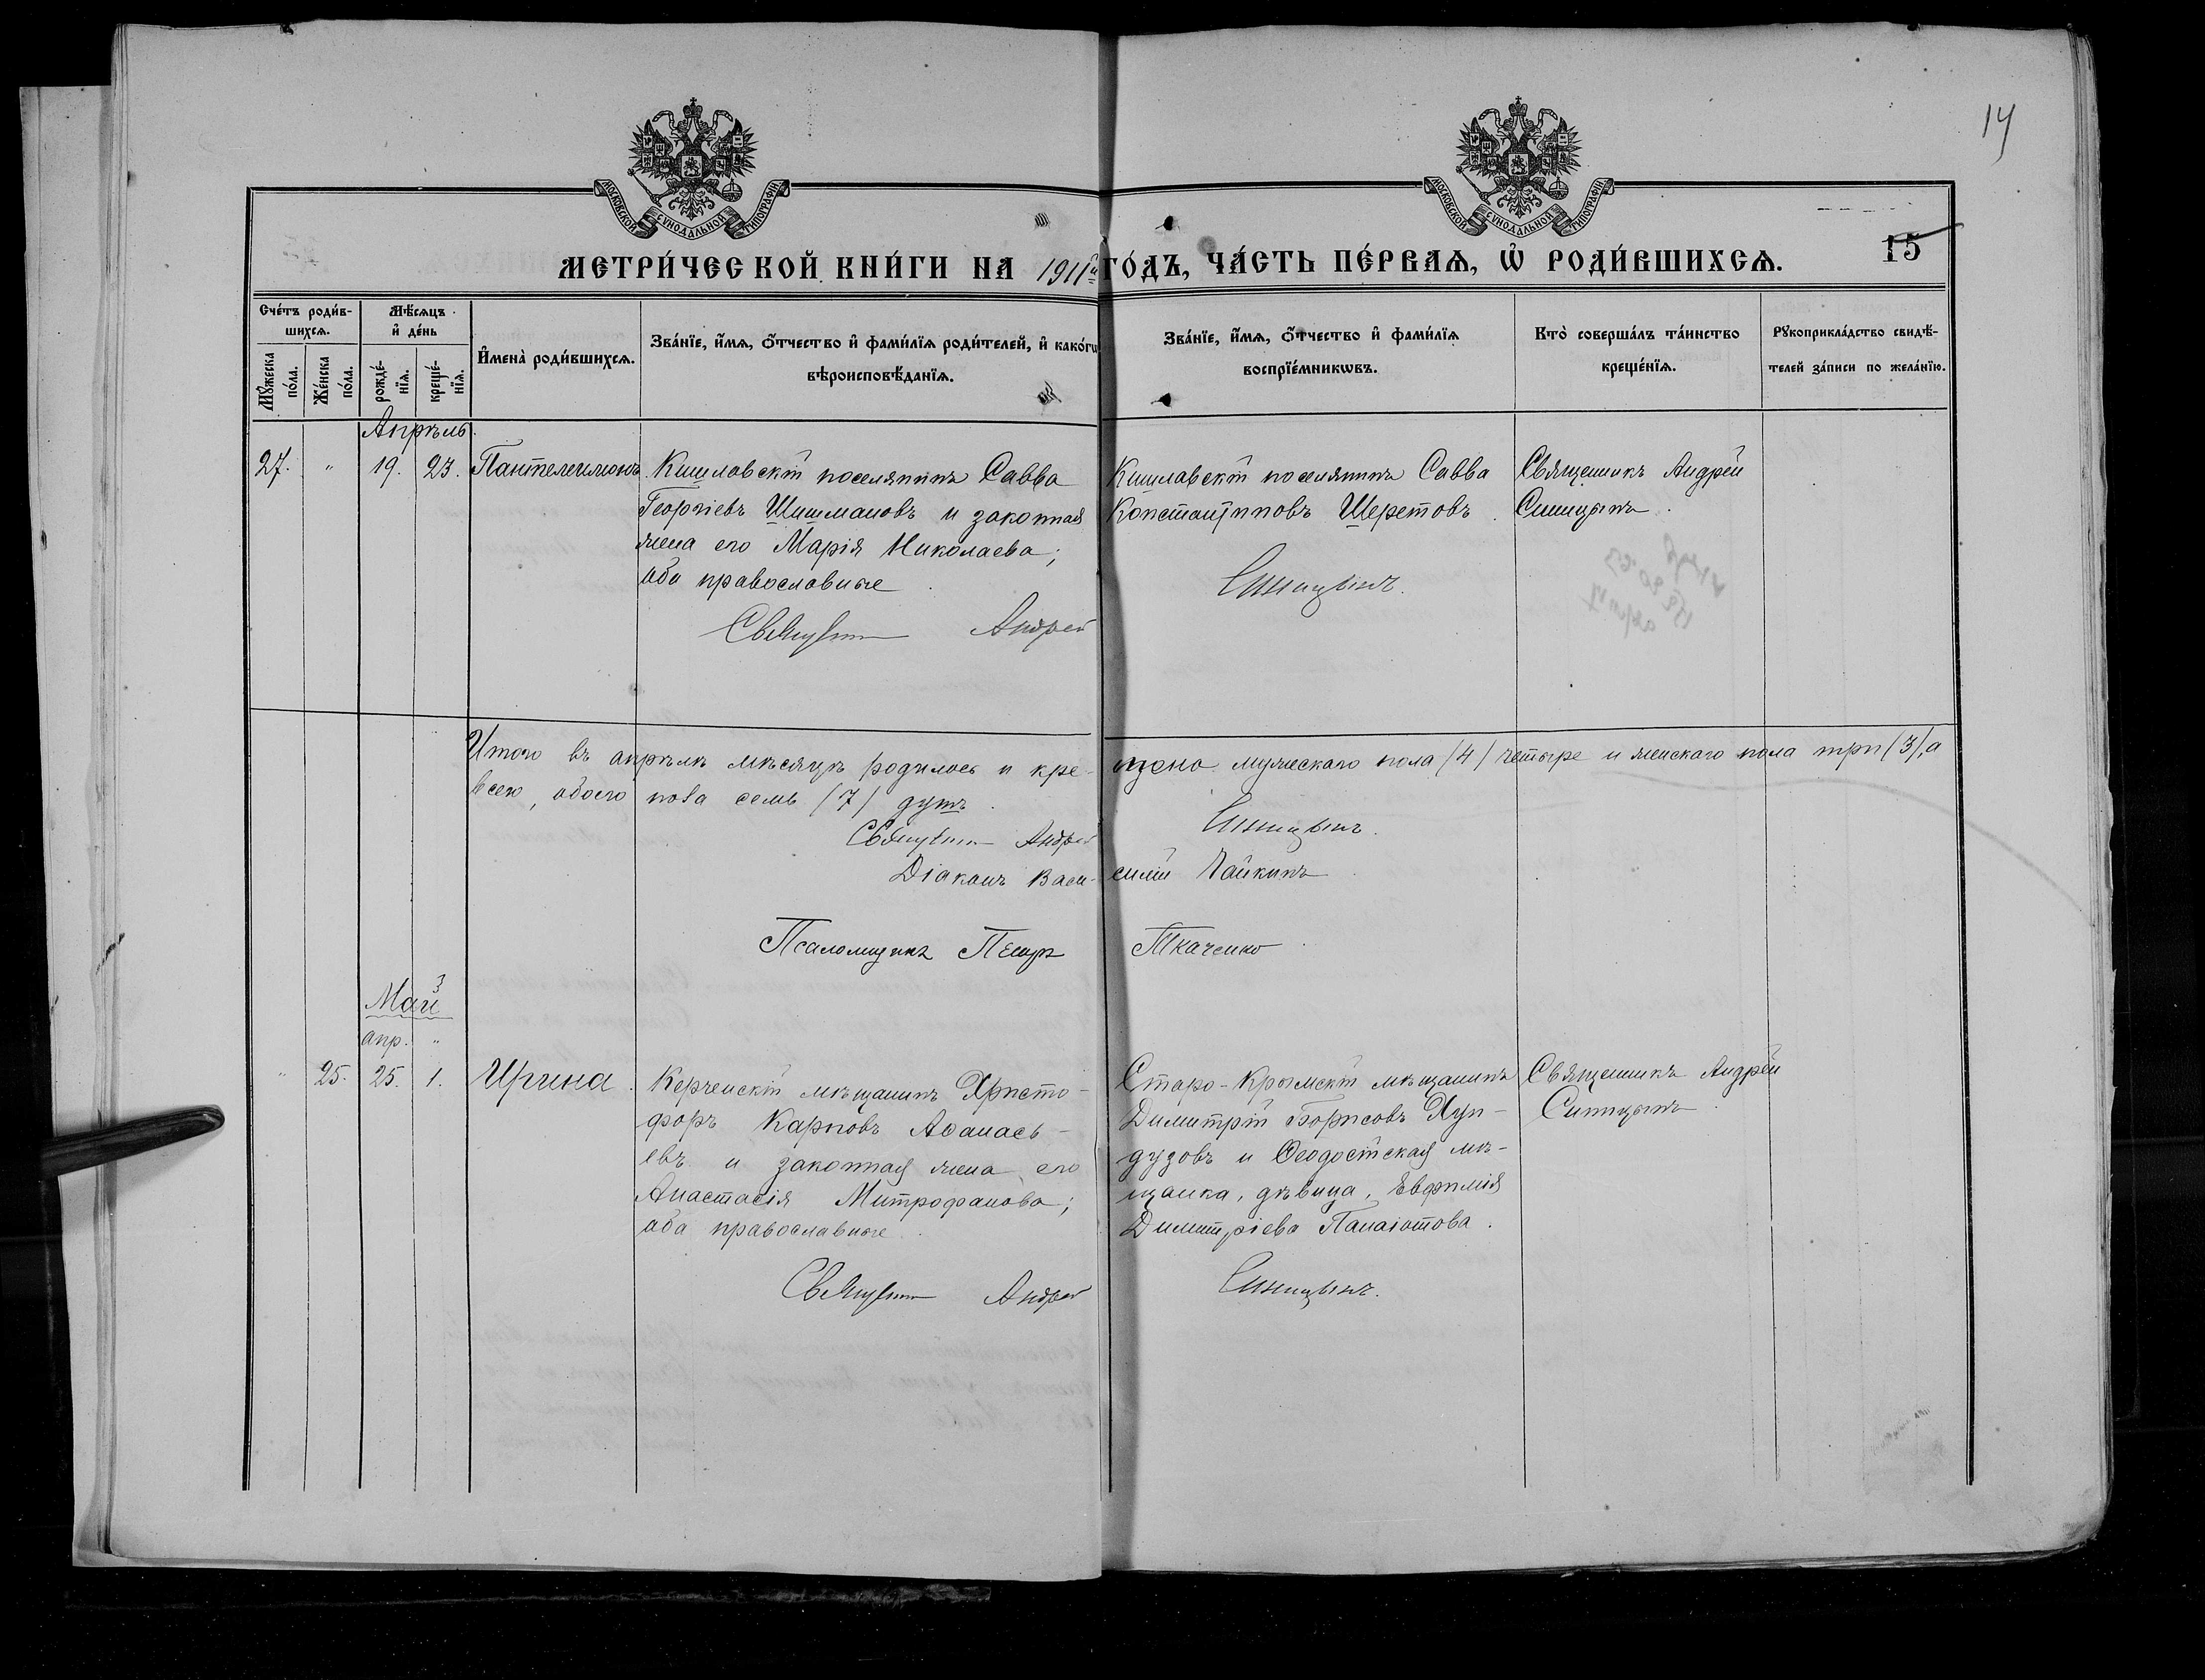 14
МОСКОВСКОЙ СУНОДАЛЬНОЙ ТИПОГРАФІИ
МОСКОВСКОЙ СУНОДАЛЬНОЙ ТИПОГРАФІИ
МЕТРИ́ЧЕСКОЙ КНИ́ГИ НА 1911й ГО́ДЪ, ЧА́СТЬ ПЕ́РВАѦ, Ѡ҆ РОДИ́ВШИХСѦ. 15
Сче́тъ роди́в-
шихсѧ.
Мꙋ́жеска по́ла.
Же́нска по́ла.
Мѣ́сѧцъ
и҆ де́нь
рожде́-
нїѧ.
креще́-
нїѧ.
И҆мена̀ роди́вшихсѧ.
Зва́нїе, и҆́мѧ, ѻ҆́тчество и҆ фами́лїѧ роди́телей, и҆ како́гѡ
вѣроисповѣ́данїѧ.
Зва́нїе, и҆́мѧ, ѻ҆́тчество и҆ фами́лїѧ
воспрїе́мникѡвъ.
Кто̀ соверша́лъ та́инство
креще́нїѧ.
Рꙋкоприкла́дство свидѣ́-
телей за́писи по жела́нїю.
Апрѣль.
27. " 19. 23. Пантелеимонъ
Кишлавскій поселянинъ Савва
Георгіевъ Шишмановъ и законная
жена его Марія Николаева;
оба православные
Священникъ Андрей
Кишлавскій поселянинъ Савва
Константиновъ Шеретовъ.
Синицынъ.
Священникъ Андрей
Синицынъ.
Итого въ апрѣлѣ мѣсяцѣ родилось и кре-щено мужескаго пола (4) четыре и женскаго пола три (3), а
всего, обоего пола семь (7) душъ.
Священникъ Андрей Синицынъ.
Діаконъ Васи-силій Чайкинъ
Псаломщикъ Петръ Ткаченко
Май
апр. "
" 25. 25. 1. Ирина.
Керченскій мѣщанинъ Христо-
форъ Карповъ Аѳанась-
евъ и законная жена его
Анастасія Митрофанова;
оба православные.
Священникъ Андрей
Старо-Крымскій мѣщанинъ
Димитрій Борисовъ Хун-
дузовъ и Ѳеодосійская мѣ-
щанка, дѣвица, Евфимія
Димитріева Панаіотова.
Синицынъ.
Священникъ Андрей
Синицынъ.